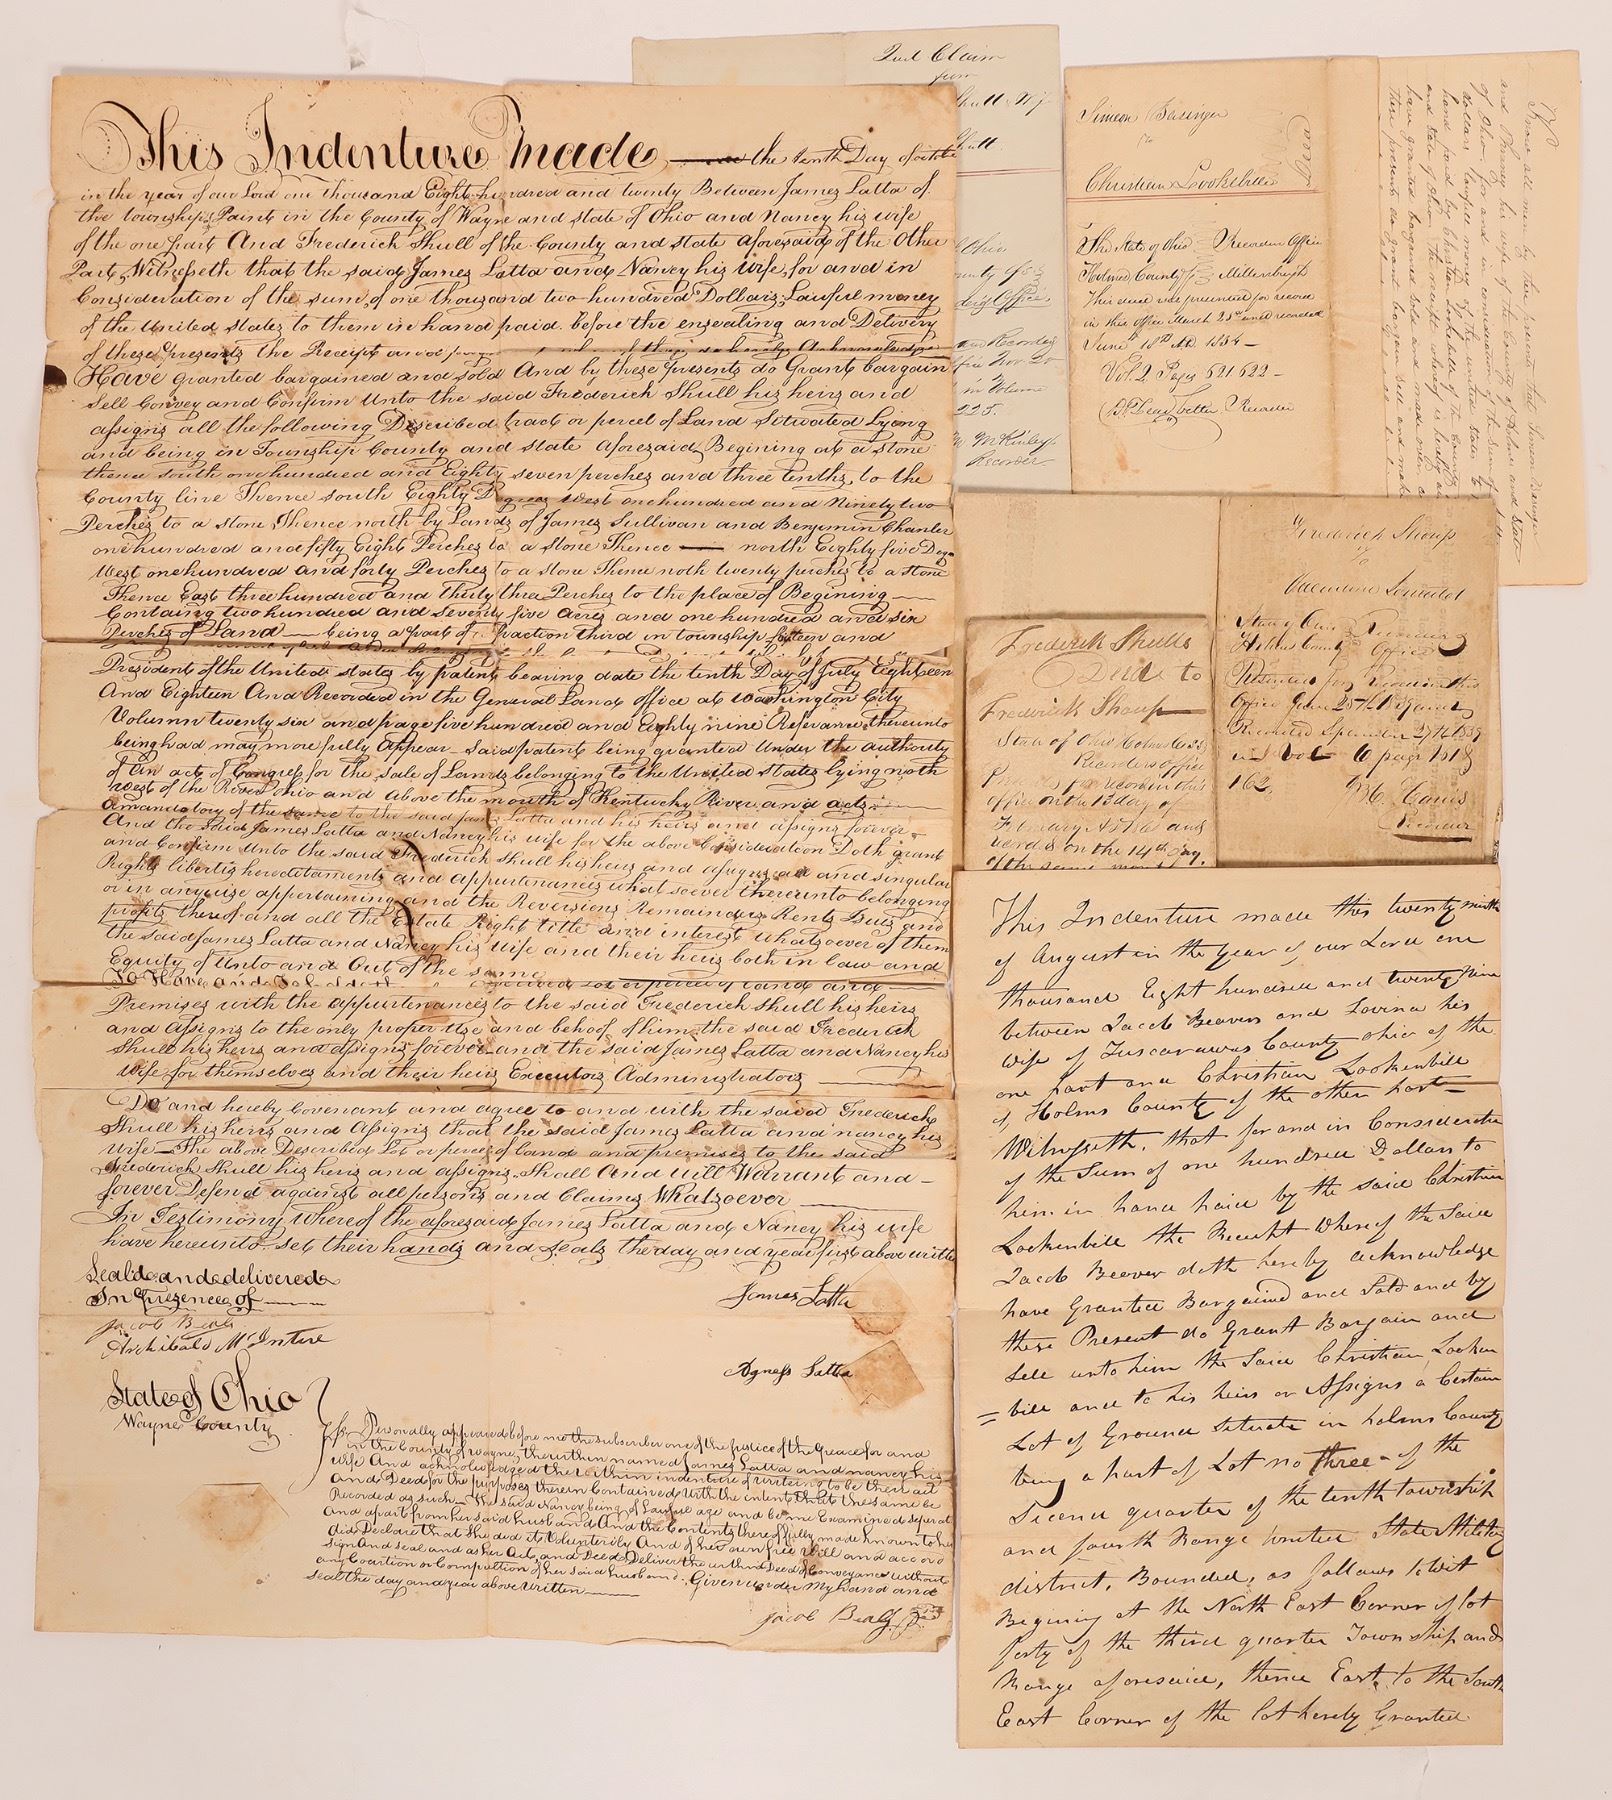 This Indenture Made the tenth Day of
in the year of our Lord one thousand Eight hundred and twenty Between James Latta of
the township Paint in the County of Wayne and State of Ohio and Nancy his wife
of the one part And Frederick Shull of the County and state aforesaid of the Other
Part Witnesseth that the said James Latta and Nancy his wife for and in
Consideration of the sum of one thousand two hundred Dollars Lawful money
of the United States to them in hand paid before the ensealing and Delivery
of these presents the Receipt and
Have granted bargained and sold And by these presents do Grant bargain
Sell Convey and Confirm Unto the said Frederick Shull his heirs and
assigns all the following Discribed tract or percel of Land Situated Lying
and being in Township County and state aforesaid Begining at a stone
thence south one hundred and Eighty seven perches and three tenths to the
County line Thence south Eighty Degrees West one hundred and Ninety two
Perches to a stone Thence north by Lands of James Sullivan and Benjmin Chanler
one hundred and fifty Eight Perches to a stone Thence north Eighty five Deg
West one hundred and forty Perches to a stone Thence noth twenty perches to a stone
Thence East three hundred and thirty three Perches to the place of Begining
Containg two hundred and seventy five acres and one hundred and six
Perches of Land being a part of fraction third in township fifteen and
President of the United states by patent bearing date the tenth Day of July Eighteen
And Eighteen And Recorded in the General Land office at Washington City
Volumn twenty six and page five hundred and Eighty nine Referance thereunto
being had may more fully Appear Said patent being granted Under the authority
of an act of Congress for the sale of Lands belonging to the United States lying noth
west of the River Ohio and above the mouth of Kentucky River and acts
amandatory of the same to the said James Latta and his heirs and assigns forever
And the said James Latta and Nancy his wife for the above Consideration Doth grant
and Confirm Unto the said Frederick Shull his heirs and assigns all and singular
Rights libertis heredetaments and appurtenances what soever thereunto belonging
or in anywise appertaining and the Reversions Remainders Rents Issues and
profits thereof and all the Estate Right title and interest whatsoever of them
the said James Latta and Nancy his wife and their heirs both in law and
Equity of Unto and Out of the same
To Have and To Hold
Premises with the appurtenances to the said Frederick Shull his heirs
and Assigns to the only proper use and behoof of him the said Frederick
Shull his heirs and assigns forever and the said James Latta and Nancy his
wife for themselves and their heirs Executors Administrators
Do and hereby Covenant and agree to and with the said Frederick
Shull his heirs and Assigns that the said James Latta and nancy his
wife The above Described Lot or percel of land and premises to the said
Frederick Shull his heirs and assigns Shall And will Warrant and
forever Defend against all persons and Claims Whatsoever
In Testimony whereof the aforesaid James Latta and Nancy his wife
have hereunto set their hands and seals the day and year first above written
Seald and delivered
In Presence of
Jacob Bealy
Archibald McIntire
James Latta
Agness Latta
State of Ohio
Wayne County
Personally appeared before me the subscriber one of the Justice of the peace for and
in the County of Wayne the within named James Latta and nancy his
wife And acknowledged the within indenture of writing to be their act
and Deed for the purposes therein Contained With the intent that the same be
Recorded as such The said Nancy being of Lawful age and by me Examined seperat
and apart from her said husband And the Contents thereof fully made known to her
did Declare that she did it Volunterily And of her own free Will and accord
sign And seal and as her Act and Deed Deliver the within Deed of Conveyance without
any Coartion or Compultion of her said husband Given under my hand and
seal the day and year above written
Jacob Bealy
Quit Claim
from
Shull
Ohio
County of
Office
Recorder
in Volume
225
McKinley
Recorder
Simeon Basinger
to
Christian Lookebill
The State of Ohio Recorders Office
Holmes County Millersburgh
This deed was presented for record
in this office March 25th and recorded
June 18th AD 1834
Vol. 2 Pages 621 622
Recorder
Know all men by these presents that Simeon
and his wife of the County of Holmes and State
of Ohio for and in consideration of the sum of
dollars lawful money of the united states to
hand paid by Christian Lookebill of the County
and state of Ohio the receipt whereof is hereby
have granted bargained sold and made over
these presents do grant bargain sell and make
Frederick Shulls
Deed to
Frederick Sharp
State of Ohio Holmes Co SS
Recorders office
for record in this
office on the 13 day of
February
on the 14th day
of the same
Frederick Sharp
to
State of Ohio Recorders
Holmes County Office
Presented for Record in this
Office June 25th 1839 and
Recorded September 27th 1839
in Vol 6 page 161 &
162
Recorder
This Indenture made this twenty ninth
of August in the year of our Lord one
thousand Eight hundred and twenty nine
between Jacob Beaver and Lovina his
wife of Tuscarawas County ohio of the
one part and Christian Lookenbill
of Holms County of the other part
Witnesseth, that for and in Consideratin
of the Sum of one hundred Dollars to
him in hand paid by the said Christian
Lookenbill the Receipt Where of the Said
Jacob Beever doth hereby acknowledge
have Granted Bargained and Sold and by
these Present do Grant Bargain and
Sell unto him the Said Christian Looken
= bill and to his heirs or Assigns a Certain
Lot of Ground Situate in holms County
being a part of Lot no three of the
Second quarter of the tenth township
and fourth Range United State Military
district, Bounded, as follows to wit
Begining at the North East Corner of lot
forty of the third quarter Township and
Range aforesaid, thence East, to the South
East Corner of the lot hereby Granted